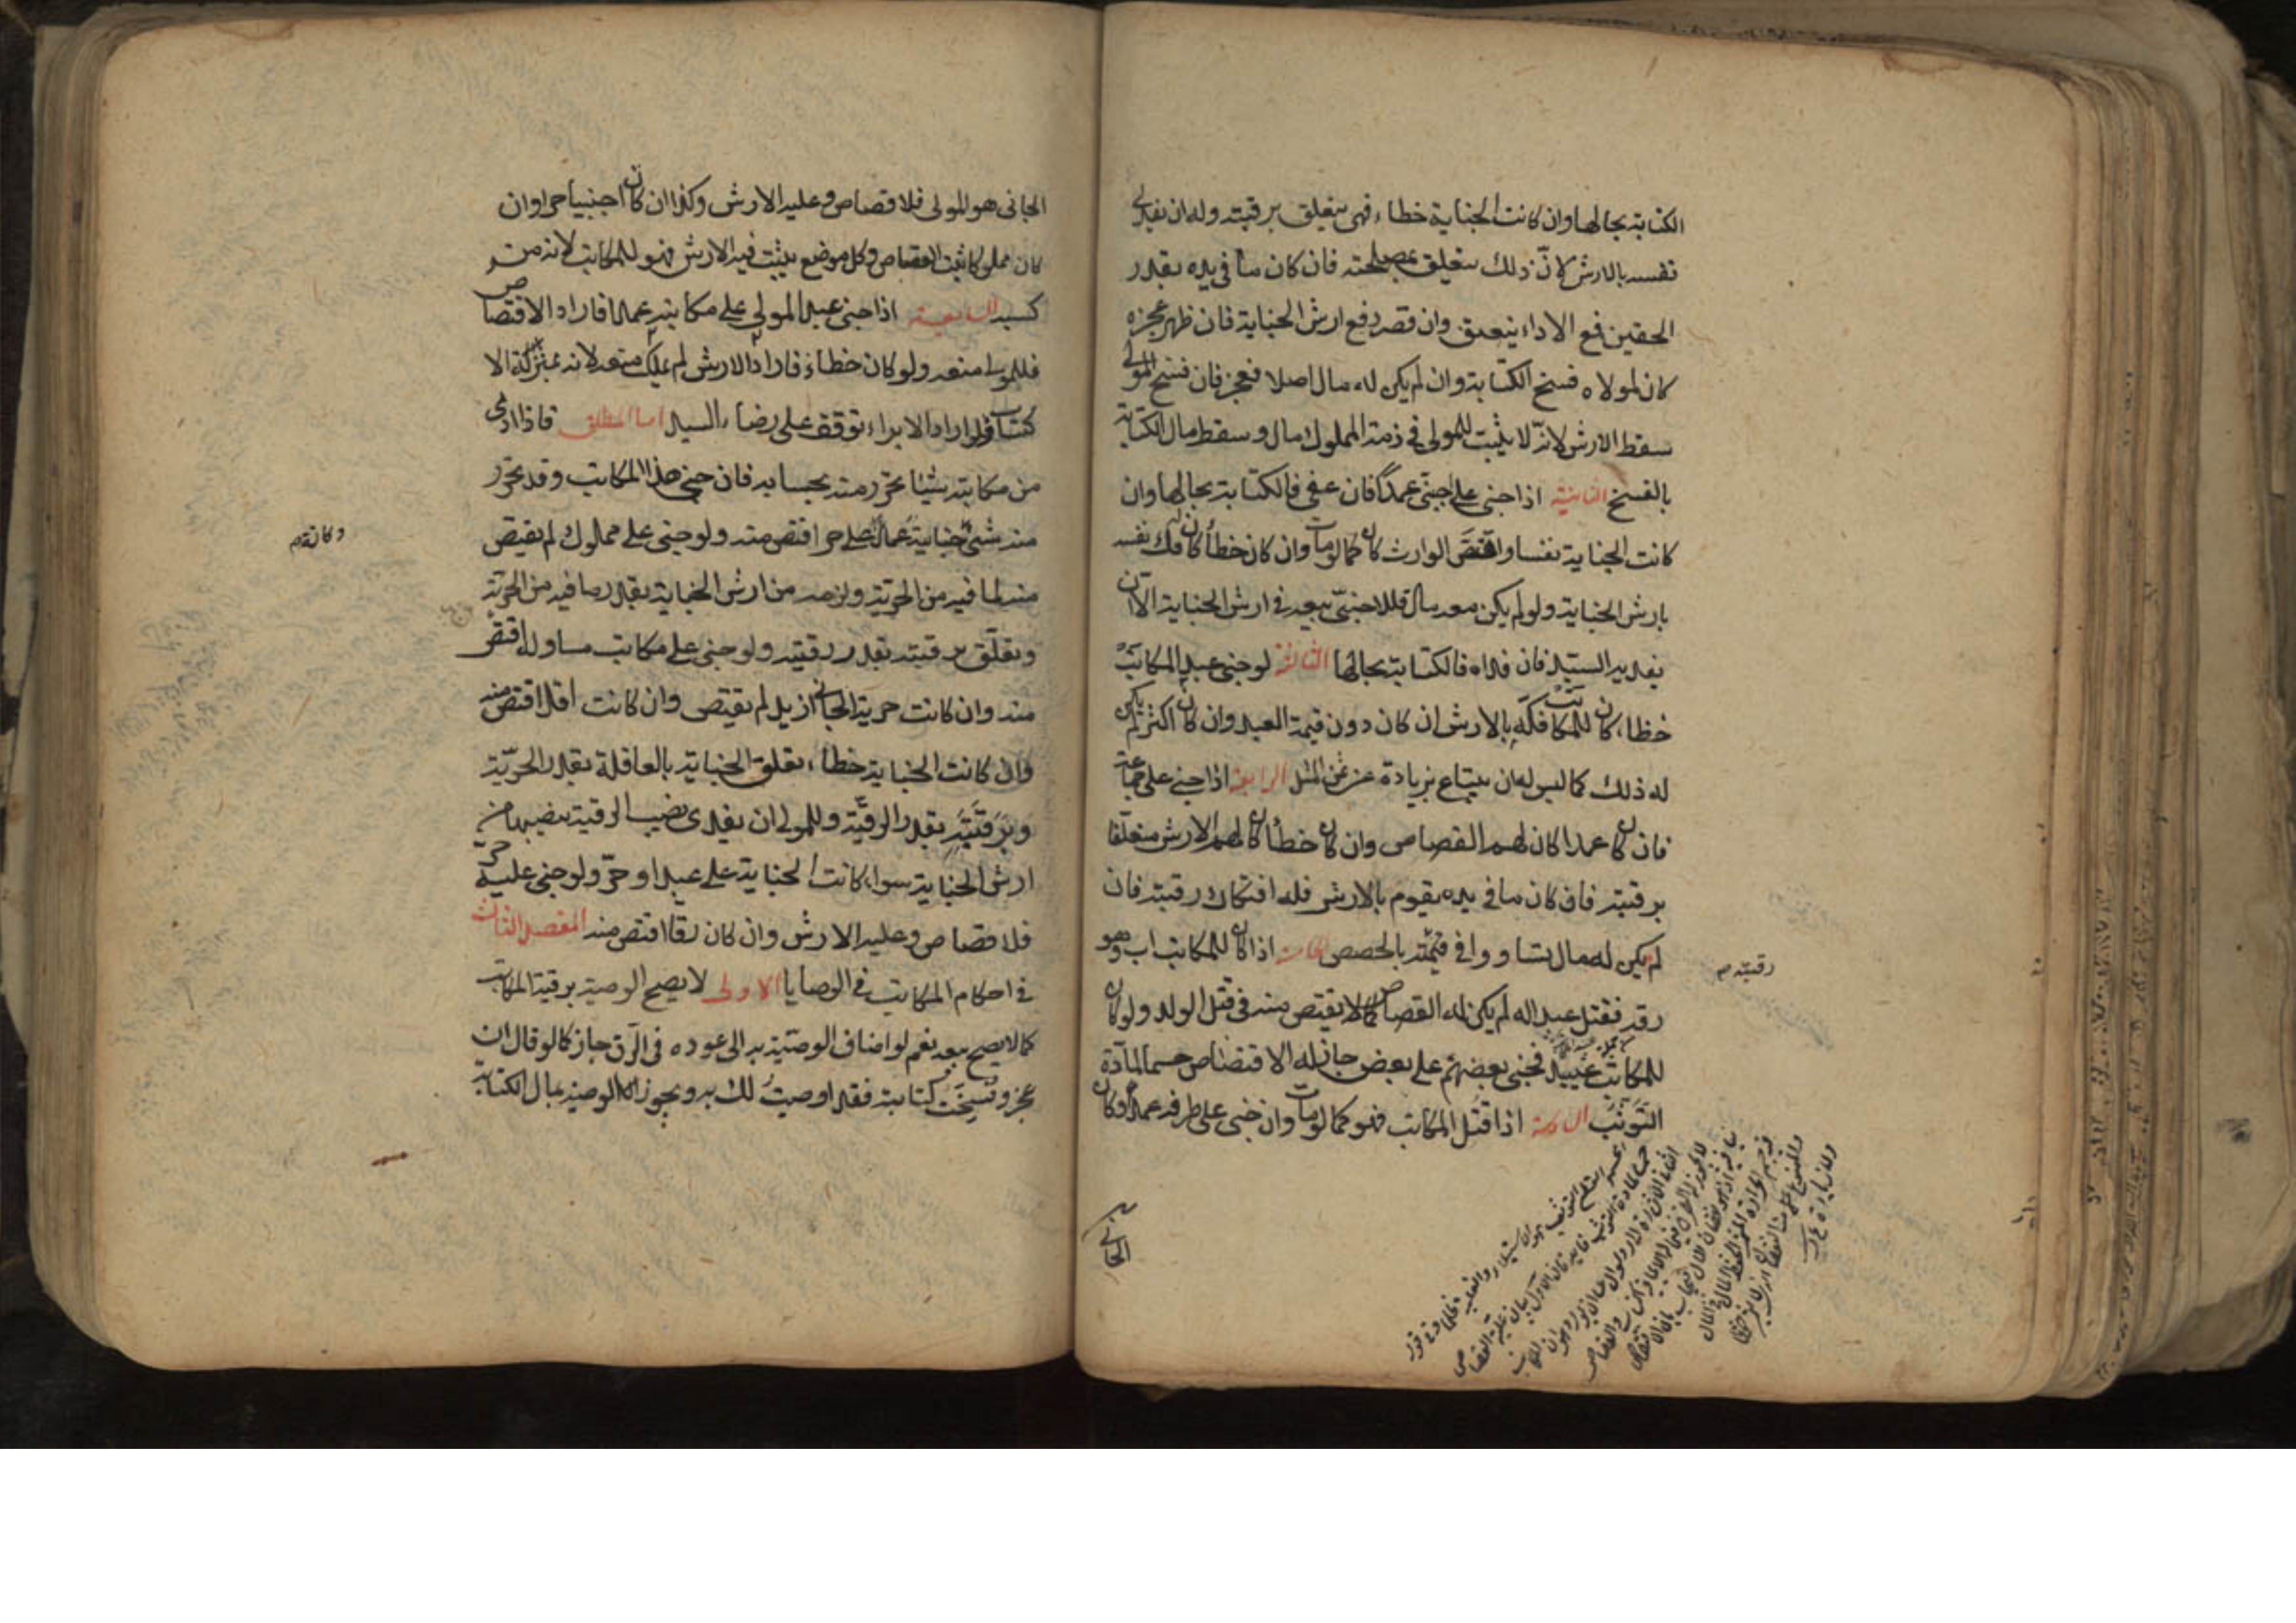 الكتابة بحالها وان كانت الجناية خطاء فهى يتعلق برقبته وله ان يفدى
نفسه بالارش لانّ ذلك يتعلق بمصلحته فان كان ما فى يده بقدر
الحقين فمع الاداء ينعتق وان قصر دفع ارش الجناية فان ظهر عجزه
كان لمولاه فسخ الكتابة وان لم يكن له مال اصلا فعجز فان فسخ المولى
سقط الارش لانّه لا يثبت للمولى فى ذمة المملوك مال وسقط مال الكتابة
بالفسخ الثانية اذا جنى على اجنبى عمدًا فان عفى فالكتابة بحالها وان
كانت الجناية نفسا واقتصّ الوارث كان كما لو مات وان كان خطأ كان له فك نفسه
بارش الجناية ولو لم يكن معه مال فللاجنبىّ بيعه فى ارش الجناية الا ان
يفديه السيّد فان فداه فالكتابة بحالها الثالثة لو جنى عبد المكاتب
خطاء كان للمكاتب فكّه بالارش ان كان دون قيمة العبد وان كان اكثر لم يكن
له ذلك كما ليس له ان يبتاع بزيادة عن ثمن المثل الرابعة اذا جنى على جماعة
فان كان عمدا كان لهم القصاص وان كان خطأ كان لهم الارش متعلّقا
برقبته فان كان ما فى يده يقوم بالارش فله افتكاك رقبته فان
لم يكن له مال تساووا فى قيمته بالحصص الخامسة اذا كان للمكاتب اب وهو
رقبته
رقه فقتل عبدا له لم يكن له القصاص كما لا يقتص منه فى قتل الولد ولو كان
للمكاتب عبيد فجنى بعضهم على بعض جاز له الاقتصاص حسما لمادّة
التوثّب السادسة اذا قتل المكاتب فهو كما لو مات وان جنى على طرفه عمدا وكان
الجانى
الجانى هو المولى فلا قصاص وعليه الارش وكذا ان كان اجنبيا حرا وان
كان مملوكا ثبت القصاص وكل موضع يثبت فيه الارش فهو للمكاتب لانه من
كسبه السابعة اذا جنى عبد المولى على مكاتبه عمدا فاراد الاقتصاص
فللمولى منعه ولو كان خطاء فاراد الارش لم يملك منعه لانه بمنزلة الا
كتساب ولو اراد الابراء توقف على رضاء السيد اما المطلق فاذا ادى
من مكاتبته شيئا تحرّر منه بحسابه فان جنى هذا المكاتب وقد تحرّر
منه شئ جناية عمدا على حر اقتص منه ولو جنى على مملوك لم يقتص
منه لما فيه من الحريّة ولزمه من ارش الجناية بقدر ما فيه من الحريّة
وتعلّق برقبته بقدر رقيته ولو جنى على مكاتب مساو له اقتص
منه وان كانت حرية الجانى ازيد لم يقتص وان كانت اقل اقتص منه
وان كانت الجناية خطاء تعلق الجناية بالعاقلة بقدر الحريّة
وبرقبته بقدر الرقيّة وللمولى ان يفدى نصيب الرقية بنصيبها من
ارش الجناية سواء كانت الجناية على عبد او حرّ ولو جنى عليه حرّ
فلا قصاص وعليه الارش وان كان رقّا اقتص منه المقصد الثالث
فى احكام المكاتب فى الوصايا الاولى لا يصح الوصية برقبة المكاتب
كما لا يصح بيعه نعم لو اضاف الوصيّة به الى عوده فى الرّق جاز كما لو قال ان
عجز وفسخت كتابته فقد اوصيت لك به ويجوز الوصية بمال الكتابة